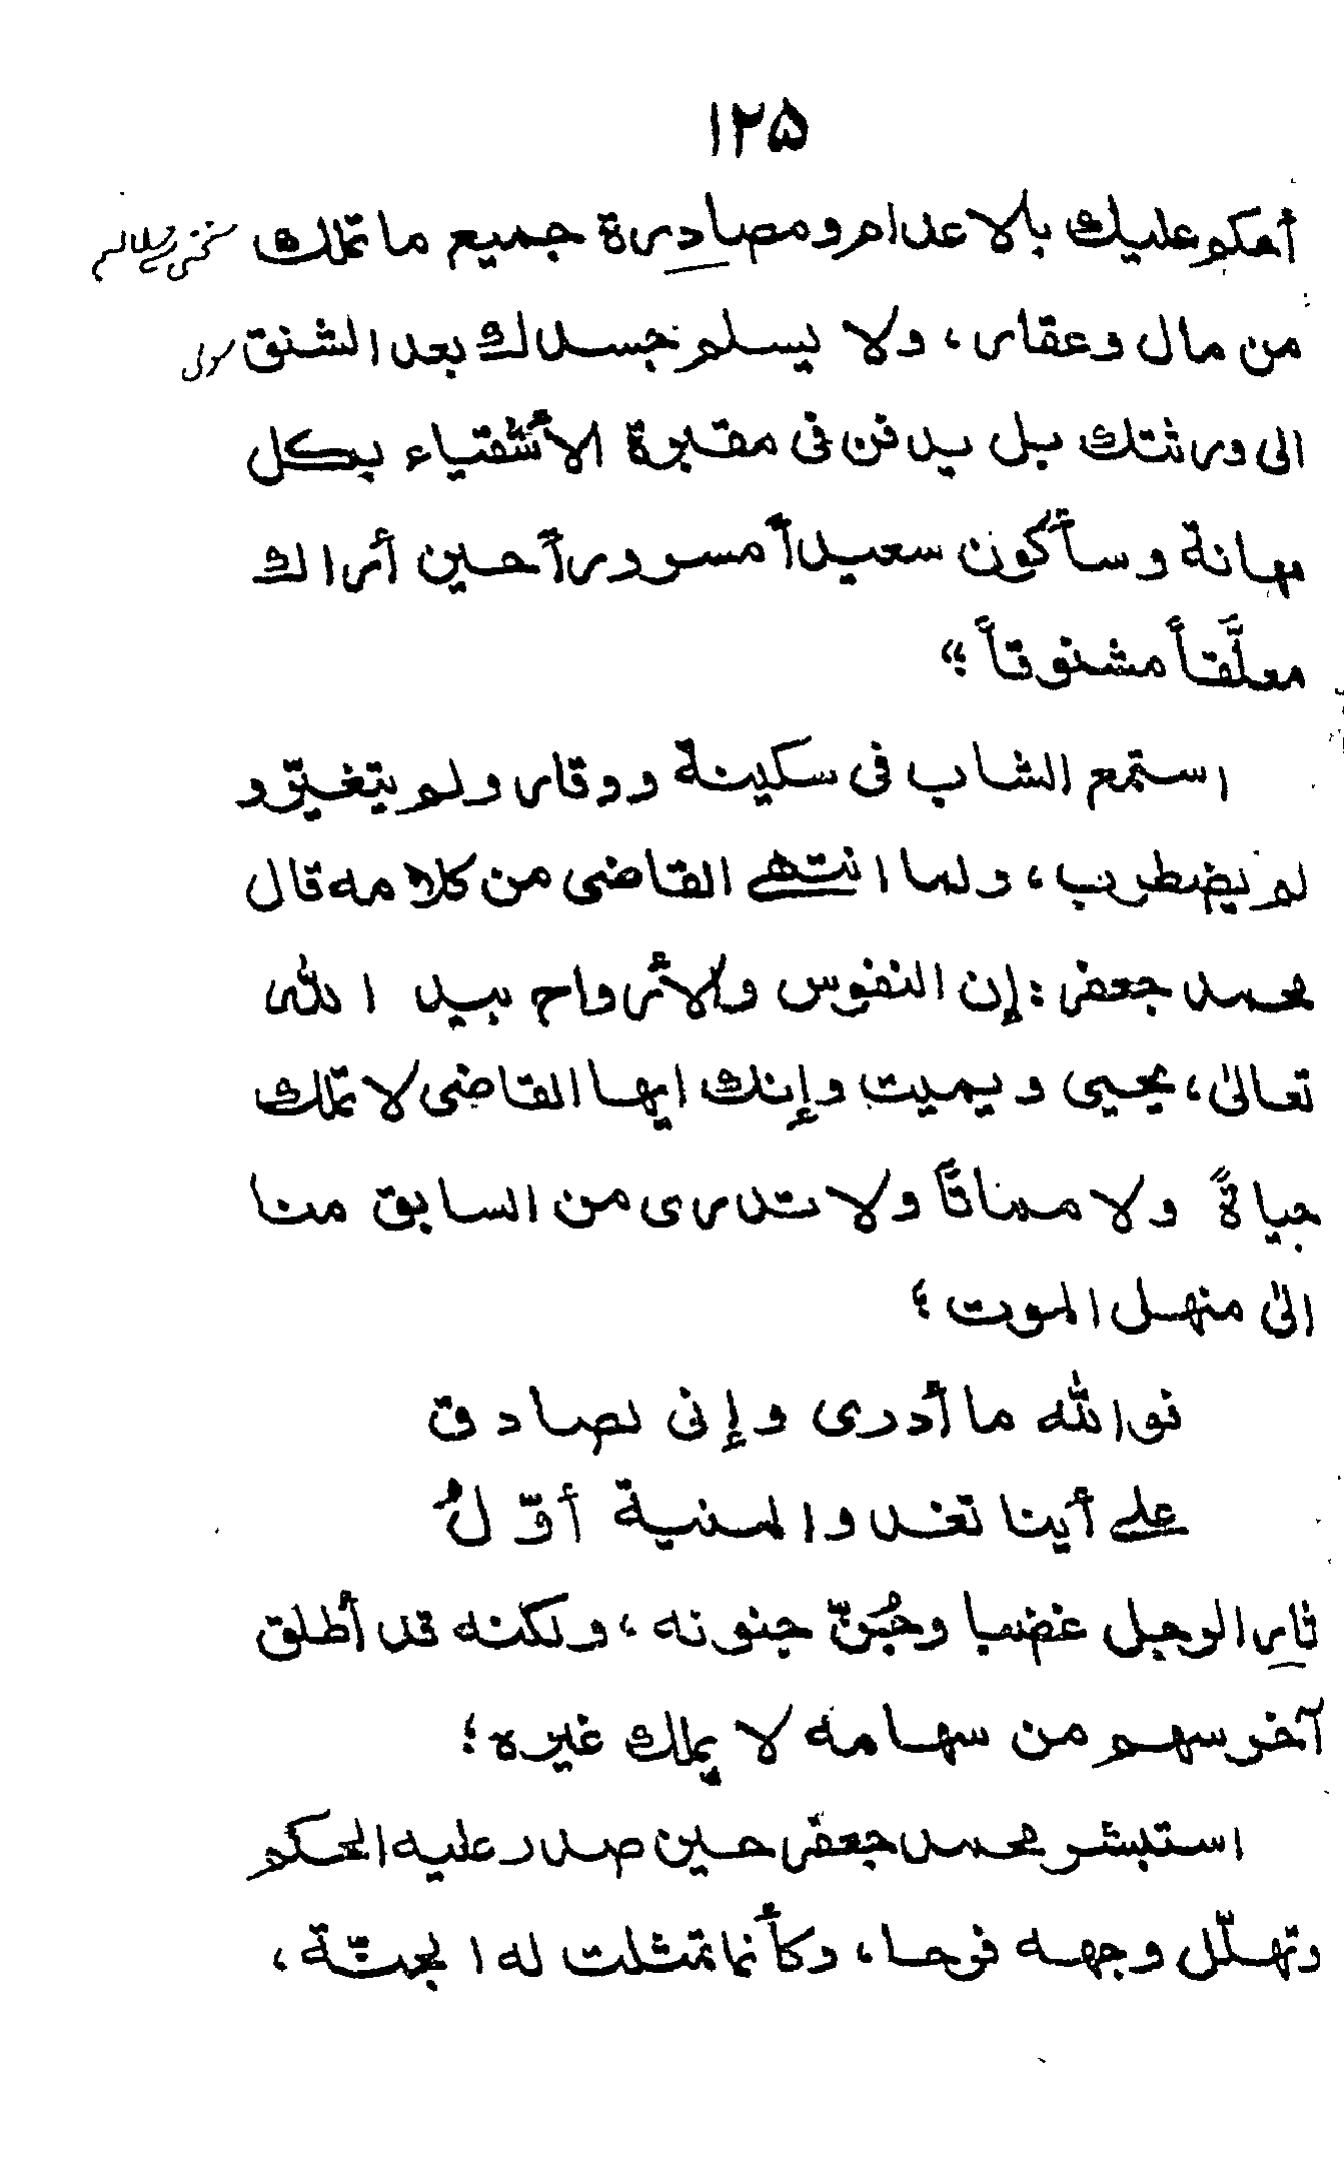 ۱۲۵
أحكم عليك بالاعدام ومصادرة جميع ما تملك
من مال وعقار، ولا يسلم جسدك بعد الشنق
الى ورثتك بل يدفن فى مقبرة الأشقياء بكل
مهانة وسأكون سعيداً مسروراً حين أراك
معلَّقاً مشنوقاً؛»
استمع الشاب فى سكينة ووقار ولم يتغيّر و
لم يضطرب، ولما انتهى القاضى من كلامه قال
محمد جعفر: إن النفوس والأرواح بيد الله
تعالىٰ، يحيى ويميت وإنك ايها القاضى لا تملك
حياةً ولا مماتاً ولا تدرى من السابق منا
الىٰ منهل الموت؛
فوالله ما أدرى وإنى لصادق
على أينا تغدو المنية أوّلُ
ثار الرجل غضبا وجُنّ جنونه، ولكنه قد أطلق
آخر سهم من سهامه لا يملك غيره؛
استبشر محمد جعفر حين صدر عليه الحكم
وتهلّل وجهه فرحا، وكأنما تمثلت له الجنّة،